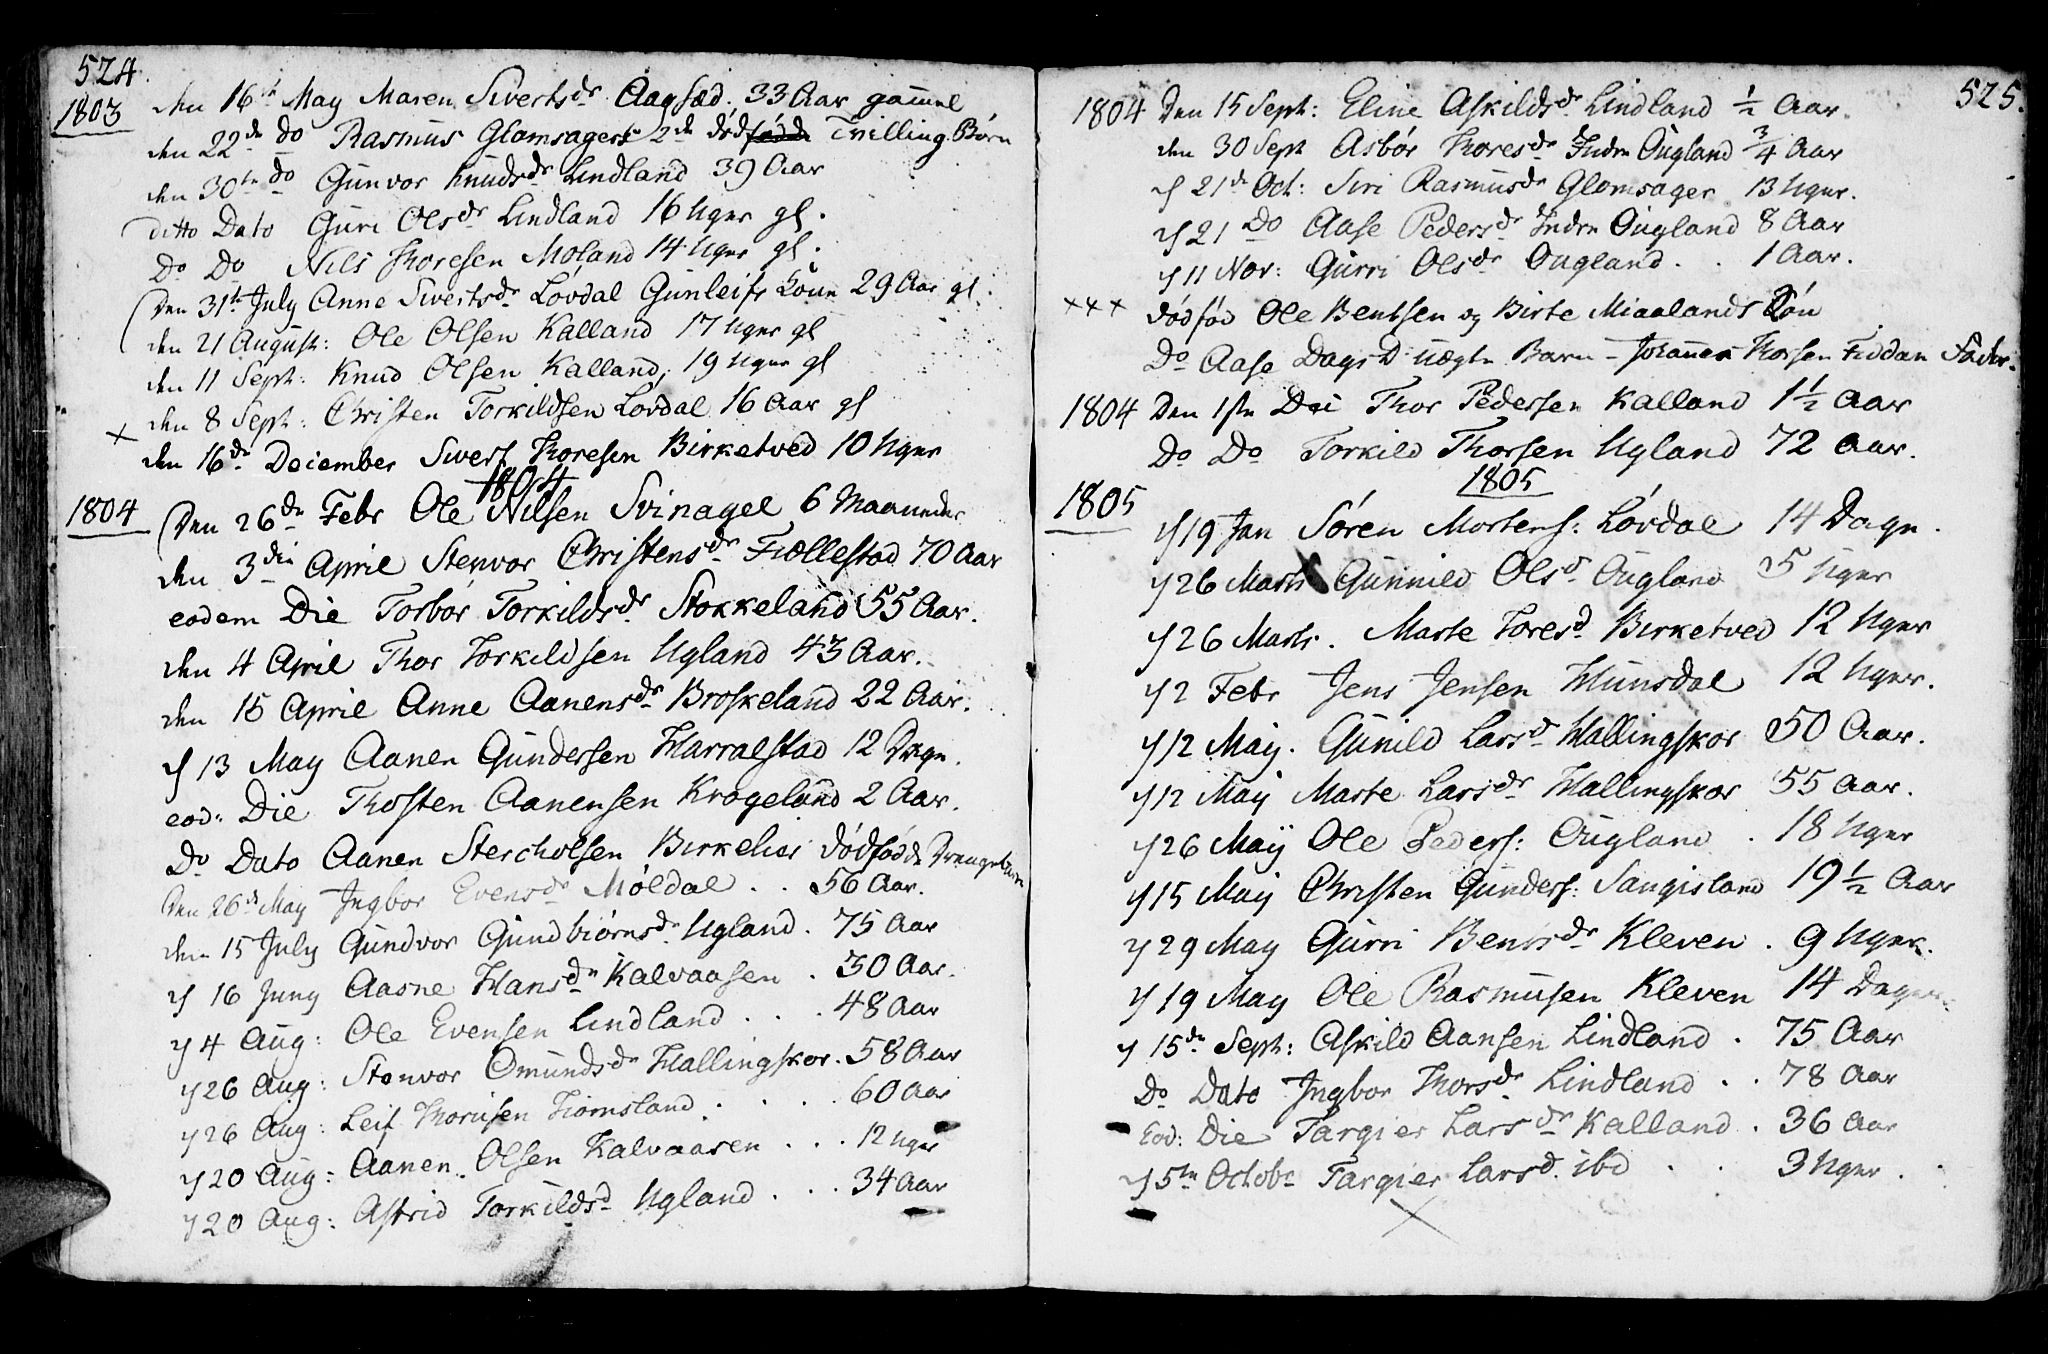 524.
1803 den 16de May Maren Sivertsdr Aagsæd. 33 Aar gamel
den 22de do Rasmus Glomsagers 2de død Tvilling Børn
den 30te do Gunvor Knudsdr Lindland 39 Aar
ditto Dato Guri Olsdr Lindland 16 Uger gl.
Do Do Nils Thoresen Moland 14 Uger gl.
Den 31te July Anne Sivertsdr Løvdal Gunleifs Kone 29 Aar gl.
den 21 August: Ole Olsen Kalland 17 Uger gl
den 11 Sept: Knud Olsen Kalland, 19 Uger gl
den 8 Sept: Christen Torkildsen Løvdal 16 Aar gl
× den 16de December Sivert Thoresen Birketved 10 Uger
1804
1804 Den 26de Febr Ole Nilsen Svinagel 6 Maaneder
den 3die April Stenvor Christensdr Fiællestad 70 Aar
eodem Die Torbor Torkildsdr Stokkeland 55 Aar.
den 4 April Thor Torkildsen Ugland 43 Aar.
den 15 April Anne Aanensdr Broskeland 22 Aar.
13 May Aanen Gundersen Harralstad 12 Dage.
eod: Die Thosten Aanensen Krogeland 2 Aar.
Do Dato Aanen Stercholsen Birkelier dødfødde Drengebarn
Den 26de May Ingbor Evensdr Møldal . . 56 Aar.
den 15 July Gundvor Gundbiørnsdr Ugland. 75 Aar
16 Juny Aasne Hansdr Kalvaasen . 30 Aar.
4 Aug: Ole Evensen Lindland . . . 48 Aar
26 Aug: Stenvor Omundsdr Hallingskor. 58 Aar
26 Aug: Leif Thorisen Hiomsland . . . . 60 Aar
20 Aug: Aanen Olsen Kalvaasen . . . 12 Uger
20 Aug: Astrid Torkildsd Ugland . . . 34 Aar
525.
1804 Den 15 Sept: Eline Askildsdr Lindland ½ Aar.
den 30 Sept Asbør Thoresdr Indre Ougland ¾ Aar
21de Oct: Siri Rasmusdr Glomsager 13 Uger.
21 Do Aase Pedersdr Indre Ougland 8 Aar
11 Nov: Gurri Olsdr Ougland . . 1 Aar.
××× dødfød Ole Bentsen og Birte Miaalands Søn
Do Aase Dags D uægte Barn - Johannes Thorsen Fiddan Fader.
1804 Den 1ste Dec Thor Pedersen Kalland 1½ Aar
Do Do Torkild Thorsen Ugland 72 Aar.
1805
1805 19 Jan Søren Mortens: Løvdal 14 Dage.
26 Marts Gunnild Olsd Ougland 5 Uger
26 Marts. Marte Toresd Birketved 12 Uger
2 Febr Jens Jensen Hunsdal 12 Uger.
12 May. Gunild Larsd Hallingskor 50 Aar.
12 May Marte Larsdr Hallingskor 55 Aar.
26 May Ole Peders: Ougland . 18 Uger
15 May Christen Gunders: Sangisland 19½ Aar
29 May Gurri Bentsdr Kleven . 9 Uger.
19 May Ole Rasmusen Kleven 14 Dager.
15de Sept: Askild Aansen Lindland . 75 Aar
Do Dato Ingbor Thorsdr Lindland . . 78 Aar
Eod: Die Targier Larsdr Kalland . 36 Aar
5te Octobr Targier Larsd. ibd . . 3 Uger .
×